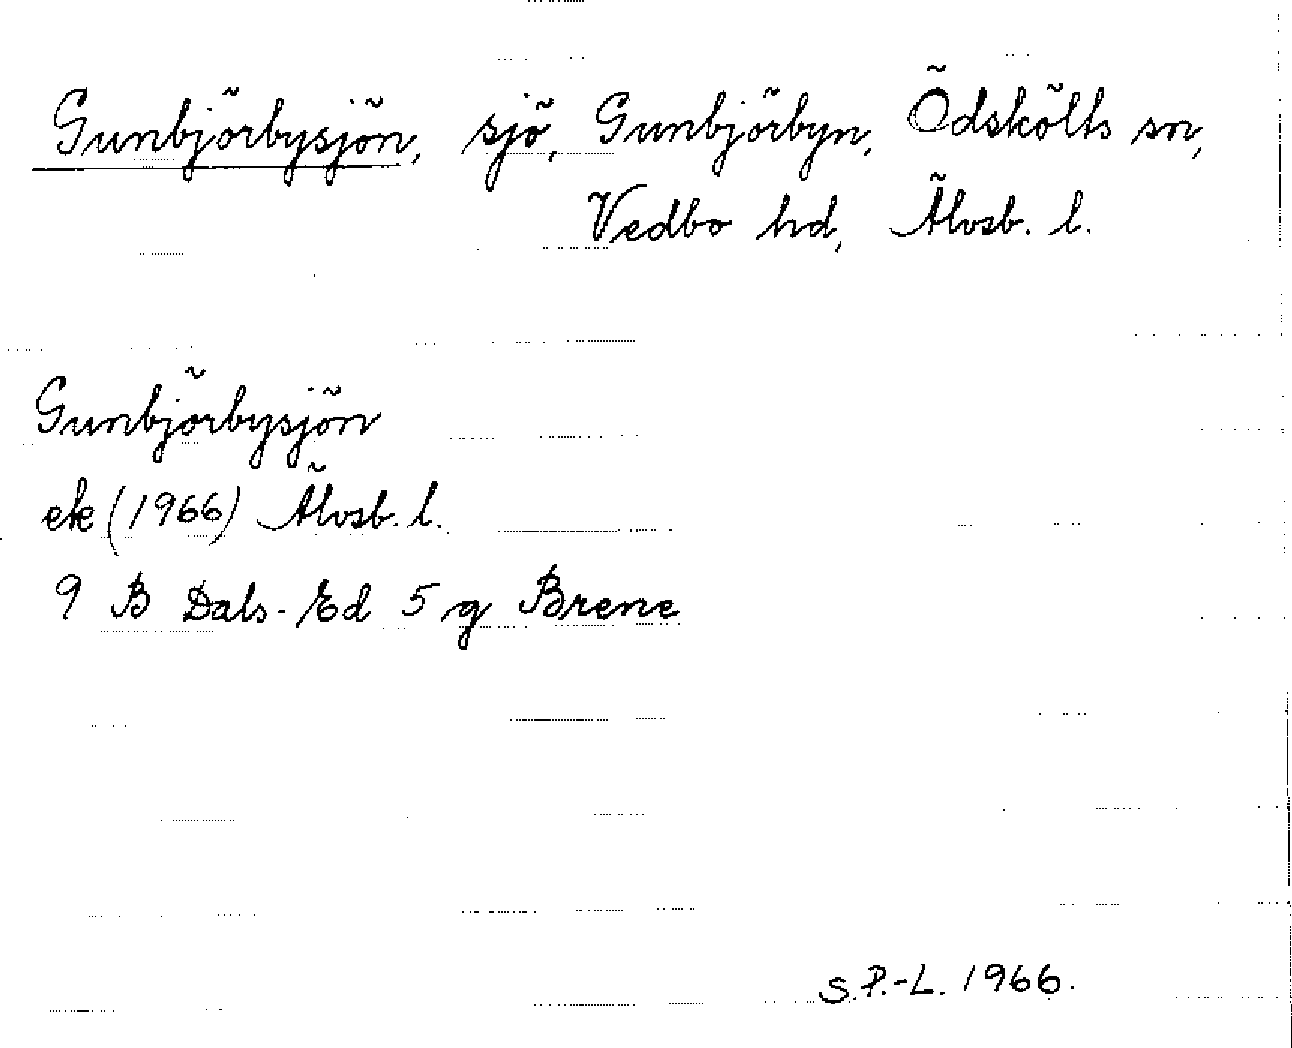 Gunbjörbysjön, sjö, Gunbjörbyn, Ödskölts sn,
Vedbo hd, Älvsb. l.
Gunbjörbysjön
ek (1966) Älvsb. l.
9 B Dals-Ed 5 g Brene
S.P.-L. 1966.